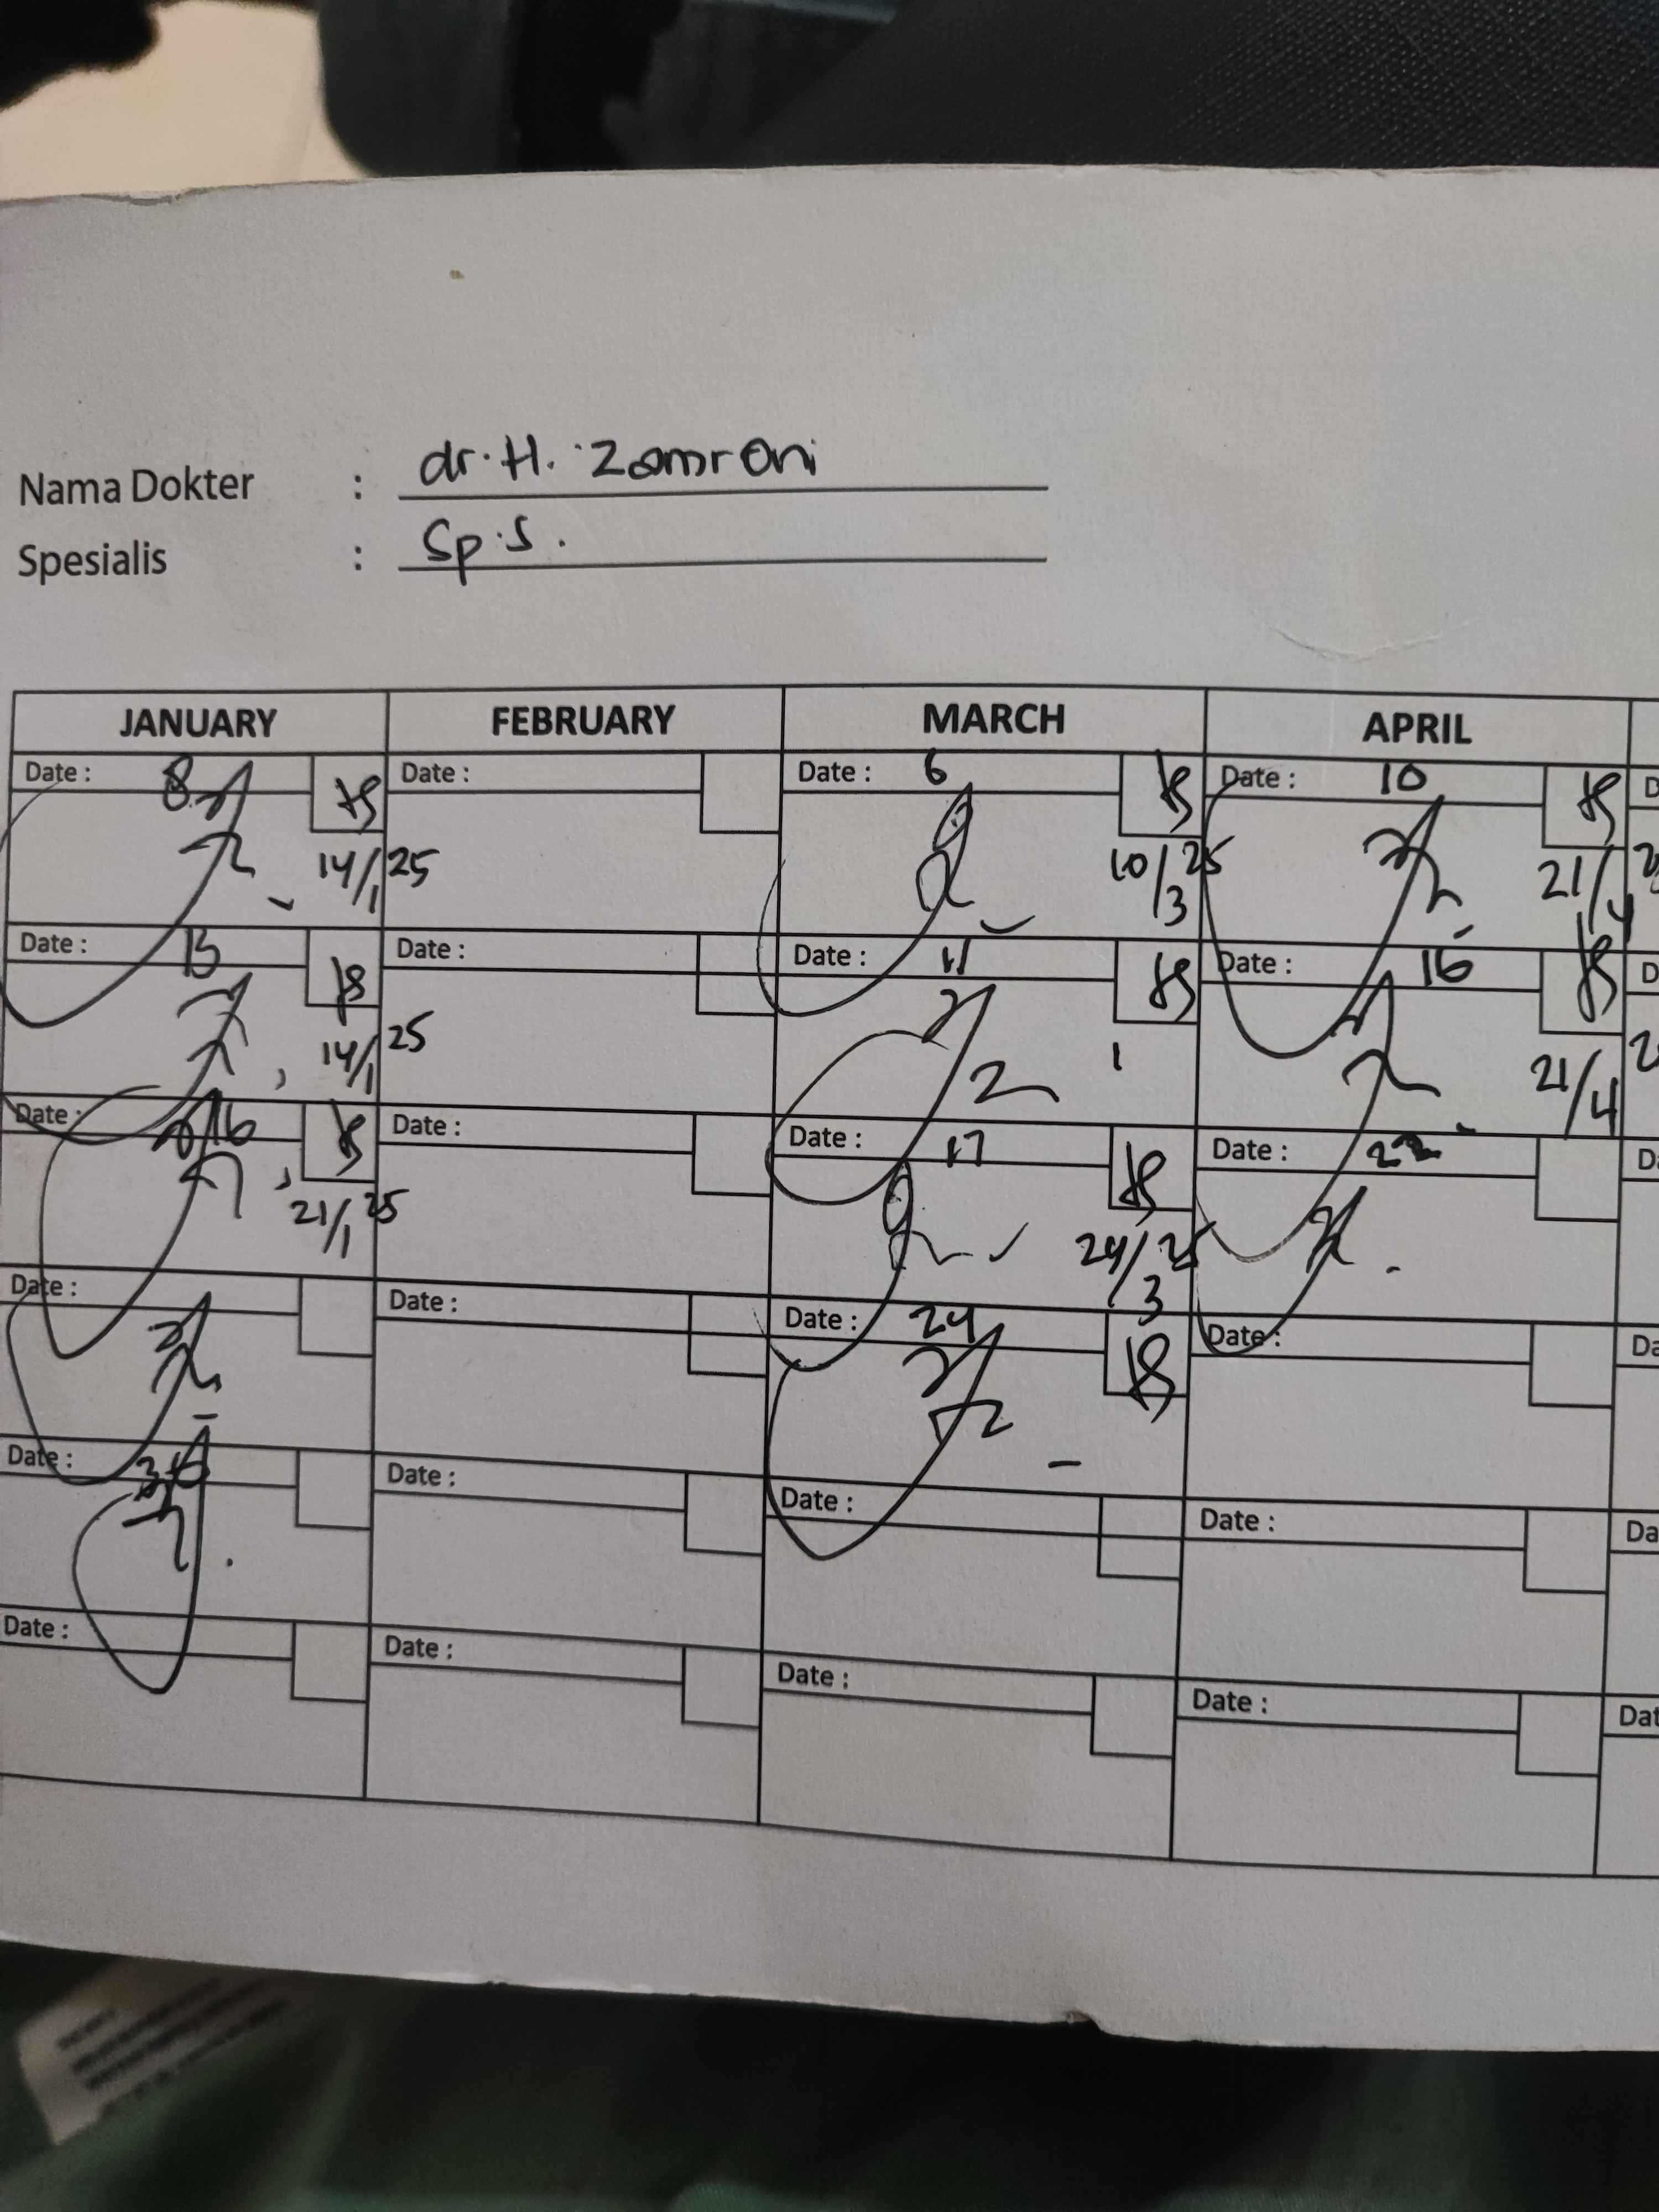 Nama Dokter : dr. H. Zamroni
Spesialis : Sp.S.
JANUARY FEBRUARY MARCH APRIL
Date : 8 Date : Date : 6 Date : 10
14/1 25 10/3 25 21/4
Date : Date : Date : 11 Date : 16
14/1 25 21/4
Date : 16 Date : Date : 17 Date : 22
21/1 25 24/3 25
Date : Date : Date : 24 Date :
Date : 30 Date : Date : Date :
Date : Date : Date : Date :